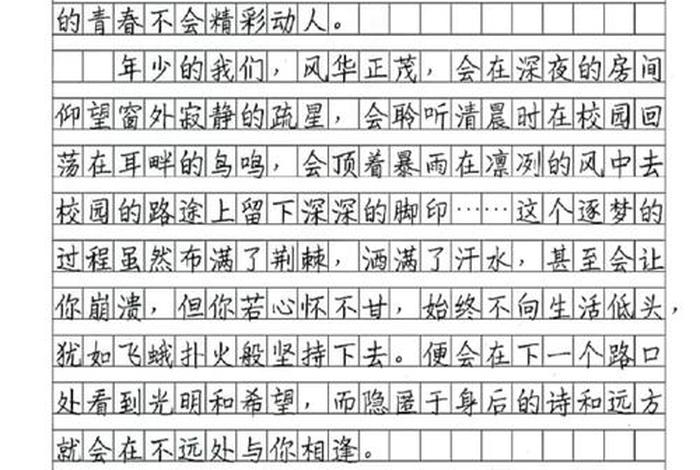 的青春不会精彩动人。
年少的我们，风华正茂，会在深夜的房间
仰望窗外寂静的疏星，会聆听清晨时在校园回
荡在耳畔的鸟鸣，会顶着暴雨在凛冽的风中去
校园的路途上留下深深的脚印……这个逐梦的
过程虽然布满了荆棘，洒满了汗水，甚至会让
你崩溃，但你若心怀不甘，始终不向生活低头，
犹如飞蛾扑火般坚持下去。便会在下一个路口
处看到光明和希望，而隐匿于身后的诗和远方
就会在不远处与你相逢。